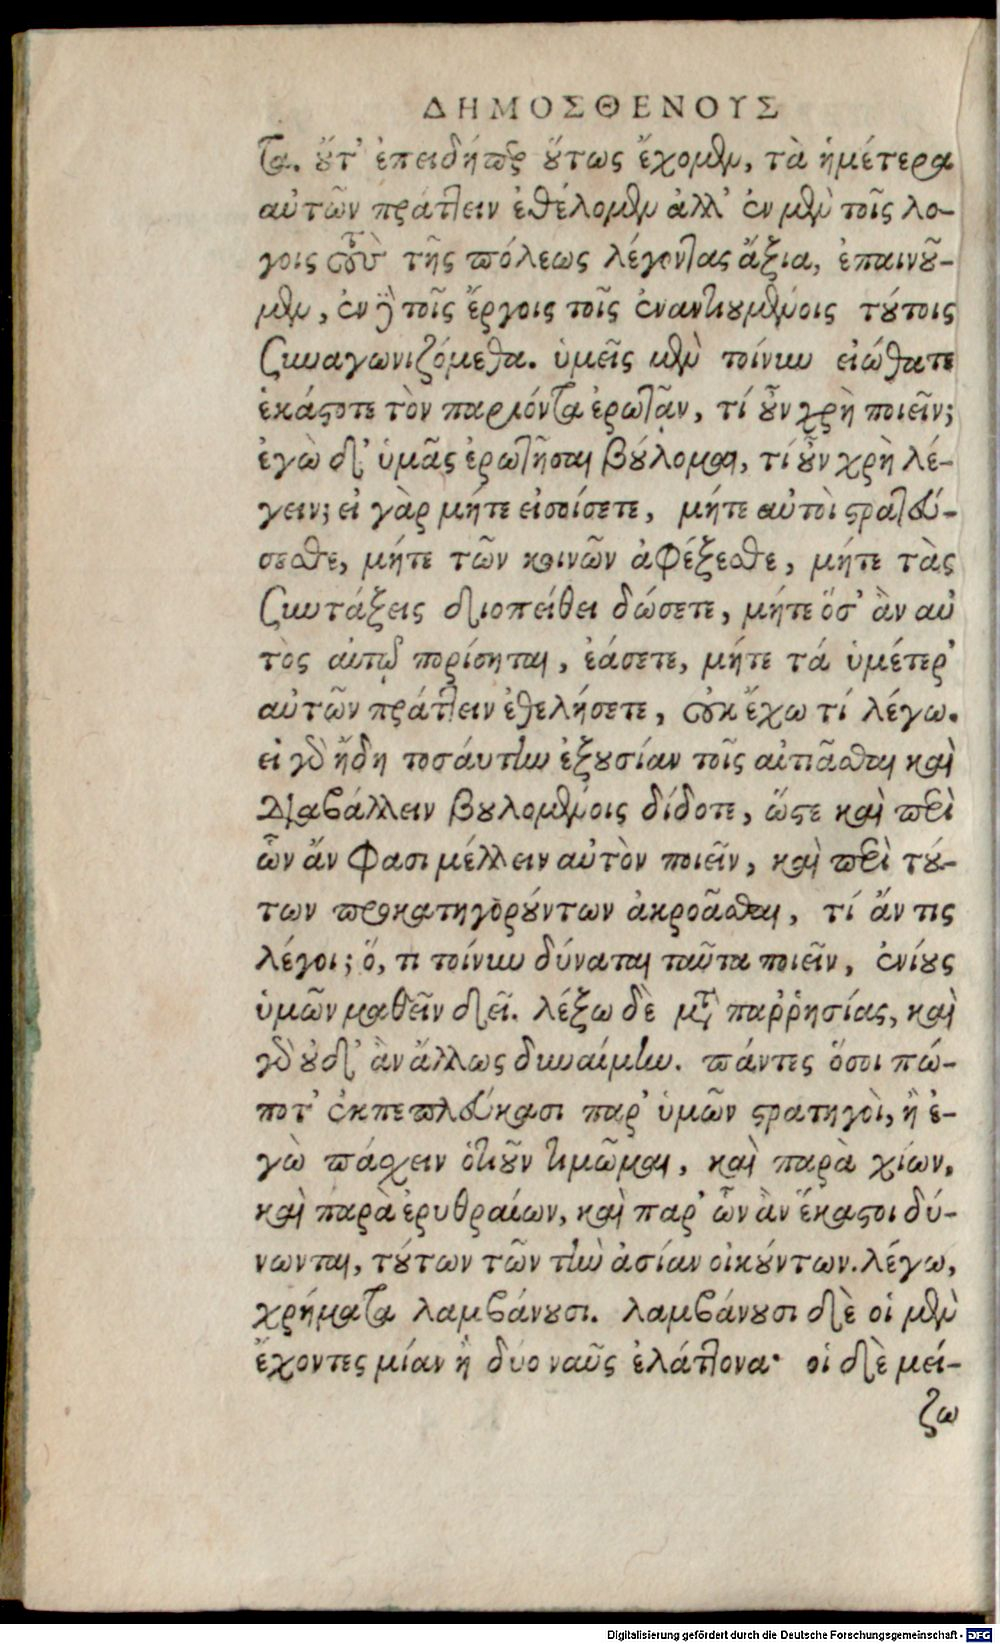 ΔΗΜΟΣΘΕΝΟΥΣ
τα. οὔτ' ἐπειδήπερ οὕτως ἔχομεν, τὰ ἡμέτερα
αὐτῶν πράττειν ἐθέλομεν ἀλλ' ἐν μὲν τοῖς λό-
γοις τοὺς τῆς πόλεως λέγοντας ἄξια, ἐπαινοῦ-
μεν, ἐν δὲ τοῖς ἔργοις τοῖς ἐναντιουμένοις τούτοις
συναγωνιζόμεθα. ὑμεῖς μὲν τοίνυν εἰώθατε
ἑκάστοτε τὸν παριόντα ἐρωτᾶν, τί οὖν χρὴ ποιεῖν;
ἐγὼ δ' ὑμᾶς ἐρωτῆσαι βούλομαι, τί οὖν χρὴ λέ-
γειν; εἰ γὰρ μήτε εἰσοίσετε, μήτε αὐτοὶ στρατεύ-
σεσθε, μήτε τῶν κοινῶν ἀφέξεσθε, μήτε τὰς
συντάξεις διοπείθει δώσετε, μήτε ὅσ' ἂν αὐ
τὸς αὑτῷ πορίσηται, ἐάσετε, μήτε τά ὑμέτερ'
αὐτῶν πράττειν ἐθελήσετε, οὐκ ἔχω τί λέγω.
εἰ γὰρ ἤδη τοσαύτην ἐξουσίαν τοῖς αἰτιᾶσθαι καὶ
διαβάλλειν βουλομένοις δίδοτε, ὥστε καὶ περὶ
ὧν ἄν φασι μέλλειν αὐτὸν ποιεῖν, καὶ περὶ τού-
των προκατηγορούντων ἀκροᾶσθαι, τί ἄν τις
λέγοι; ὅ, τι τοίνυν δύναται ταῦτα ποιεῖν, ἐνίους
ὑμῶν μαθεῖν δεῖ. λέξω δὲ μετὰ παῤῥησίας, καὶ
γὰρ οὐδ' ἂν ἄλλως δυναίμην. πάντες ὅσοι πώ-
ποτ' ἐκπεπλεύκασι παρ' ὑμῶν στρατηγοὶ, ἢ ἐ-
γὼ πάσχειν ὁτιοῦν τιμῶμαι, καὶ παρὰ χίων,
καὶ παρὰ ἐρυθραίων, καὶ παρ' ὧν ἂν ἕκαστοι δύ-
νωνται, τούτων τῶν τὴν ἀσίαν οἰκούντων. λέγω,
χρήματα λαμβάνουσι. λαμβάνουσι δὲ οἱ μὲν
ἔχοντες μίαν ἢ δύο ναῦς ἐλάττονα· οἱ δὲ μεί-
ζω
Digitalisierung gefördert durch die Deutsche Forschungsgemeinschaft - DFG